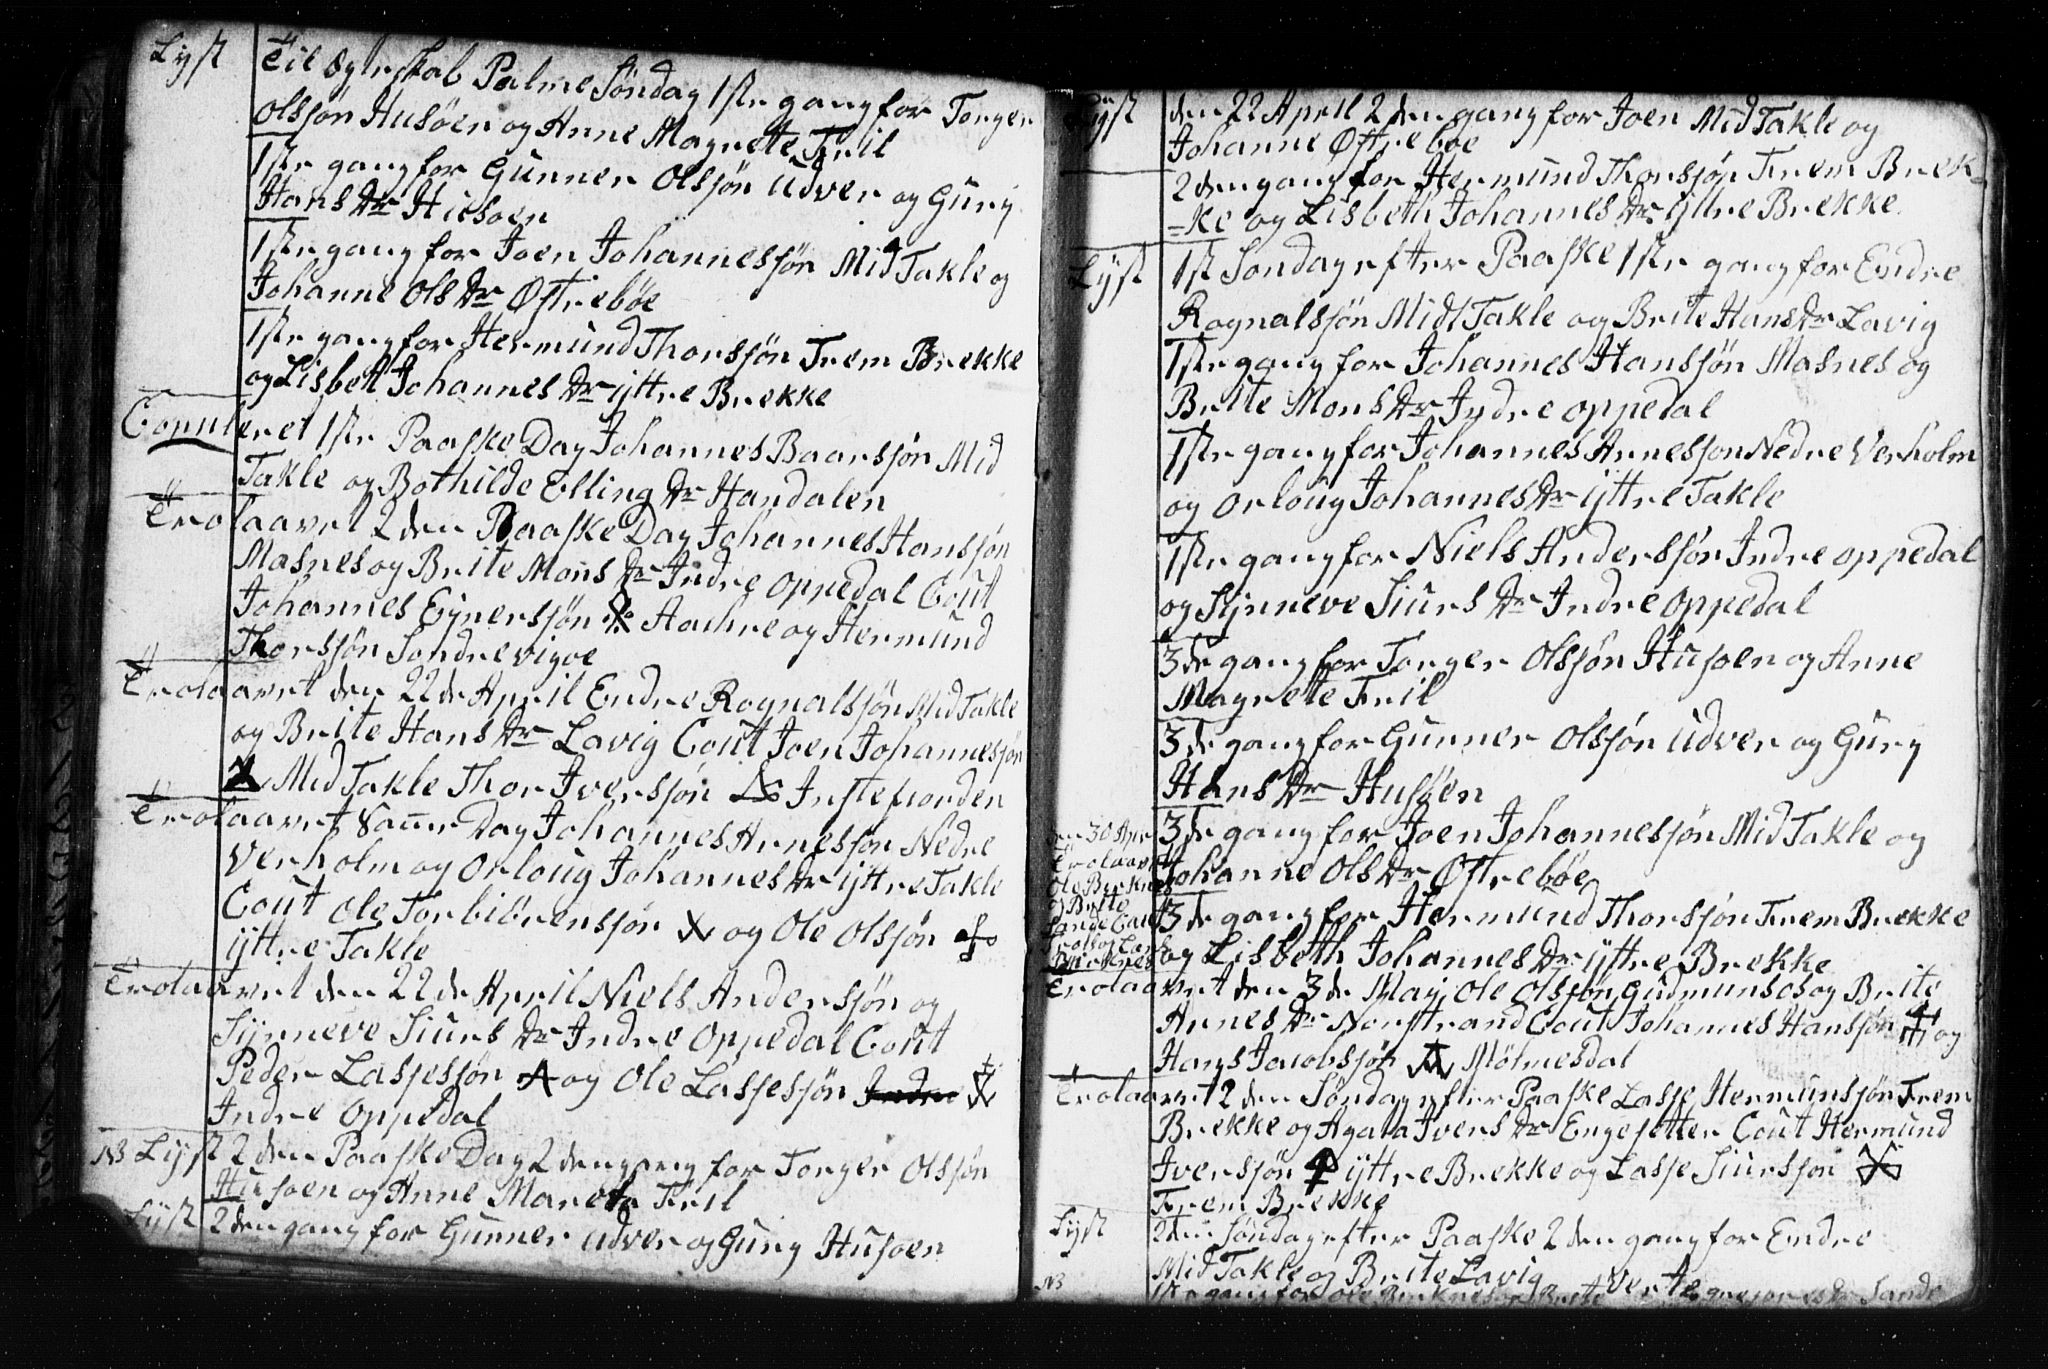 Lyst Til Egteskab Palme Søndag 1ste gang for Torger
Olssøn Husøen og Anne Magrete Friil
1ste gang for Gunner Olssøn Udver og Gury
Hans Dr Husoen
1ste gang for Joen Johannessøn Mid Takle og
Johanne Ols Dr Østrebøe
1ste gang for Hermund Thorssøn Frem Brekke
og Lisbeth Johannes Dr yttre Brekke
Copuleret 1ste Paaske Day Johannes Baarssøn Mid
Takle og Bothilde Elling Dr Handalen
Trolaavet 2den Paaske Day Johannes Hanssøn
Masnes og Brite Mons Dr Indre Oppedal Cout
Johannes Eynerssøn og Hermund
Thorssøn Søndre vigoe
Trolaavet den 22de April Endre Rognalssøn Mid Takle
og Brite Hans Dr Lavig Cout Joen Johannessøn
Mid Takle Thor Iverssøn Instefiorden
Trolaavet Samme Day Johannes Arnessøn Nedre
Verholm og Orloug Johannes Dr yttre Takle
Cout Ole Torbiörenssøn og Ole Olssøn
yttre Takle
Trolaavet den 22de April Niels Anderssøn og
Synneve Siurs Dr Indre Oppedal Cout
Peder Lassessøn og Ole Lassessøn Indre
Indre Oppedal
NB Lyst 2den Paaske Day 2den gang for Torger Olssøn
Husoen og Anne Marete Friil
Lyst 2den gang for Gunner Udver og Gury Husoen
Lyst den 22 April 2den gang for Joen Mid Takle og
Johanne Østrebøe
2den gang for Hermund Thorssøn Frem Brek-
=ke og Lisbeth Johannes Dr yttre Brekke
Lyst 1st Søndag efter Paaske 1ste gang for Endre
Rognalssøn Midt Takle og Brite Hans Dr Lavig
1ste gang for Johannes Hanssøn Masnes og
Brite Mons Dr Indre Oppedal
1ste gang for Johannes Arnessøn Nedre Verholm
og Orloug Johannes Dr yttre Takle
1ste gang for Niels Anderssøn Indre oppedal
og Synneve Siurs Dr Indre Oppedal
3de gang for Torger Olssøn Husoen og Anne
Magrette Friil
3de gang for Gunner Olssøn Udver og Gury
Hans Dr Husøen
3de gang for Joen Johannessøn Mid Takle og
Johanne Ols Dr Østrebøe
3de gang for Hermund Thorssøn Frem Brekke
og Lisbeth Johannes Dr yttre Brekke
den 30 Apr
Trolaavet
Ole Birknes
og Brite
Sande Cout
Birknes
Trolaavet den 3de May Ole Olssøn og Brite
Arnes Dr Norstrand Cout Johannes Hanssøn og
Hans Jacobssøn Mölmesdal
Trolaavet 2den Søndag efter Paaske Lasse Hermunssøn Frem
Brekke og Agata Ivers Dr Engesetter Cout Hermund
Iverssøn yttre Brekke og Lasse Siurssøn
Frem Brekke
Lyst 2den Søndag efter Paaske 2den gang for Endre
Mid Takle og Brite Lavig
NB 1ste gang for Ole Birknes og Brite Sande